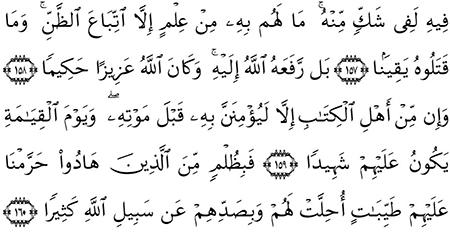 فِيهِ لَفِى شَكٍّ مِّنْهُ ۚ مَا لَهُم بِهِۦ مِنْ عِلْمٍ إِلَّا ٱتِّبَاعَ ٱلظَّنِّ ۚ وَمَا
قَتَلُوهُ يَقِينًۢا ﴿١٥٧﴾ بَل رَّفَعَهُ ٱللَّهُ إِلَيْهِ ۚ وَكَانَ ٱللَّهُ عَزِيزًا حَكِيمًا ﴿١٥٨﴾
وَإِن مِّنْ أَهْلِ ٱلْكِتَٰبِ إِلَّا لَيُؤْمِنَنَّ بِهِۦ قَبْلَ مَوْتِهِۦ ۖ وَيَوْمَ ٱلْقِيَٰمَةِ
يَكُونُ عَلَيْهِمْ شَهِيدًا ﴿١٥٩﴾ فَبِظُلْمٍ مِّنَ ٱلَّذِينَ هَادُوا۟ حَرَّمْنَا
عَلَيْهِمْ طَيِّبَٰتٍ أُحِلَّتْ لَهُمْ وَبِصَدِّهِمْ عَن سَبِيلِ ٱللَّهِ كَثِيرًا ﴿١٦٠﴾